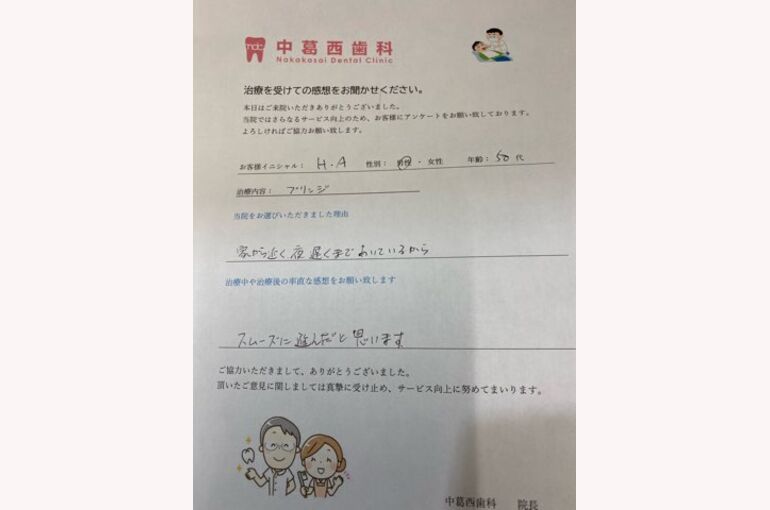 ndc
中葛西歯科
Nakakasai Dental Clinic
治療を受けての感想をお聞かせください。
本日はご来院いただきありがとうございました。
当院ではさらなるサービス向上のため、お客様にアンケートをお願い致しております。
よろしければご協力お願い致します。
お客様イニシャル： H.A 性別： 男性 ・ 女性 年齢： 50 代
治療内容： ブリッジ
当院をお選びいただきました理由
家から近く夜遅くまであいているから
治療中や治療後の率直な感想をお願い致します
スムーズに進んだと思います
ご協力いただきまして、ありがとうございました。
頂いたご意見に関しましては真摯に受け止め、サービス向上に努めてまいります。
中葛西歯科 院長